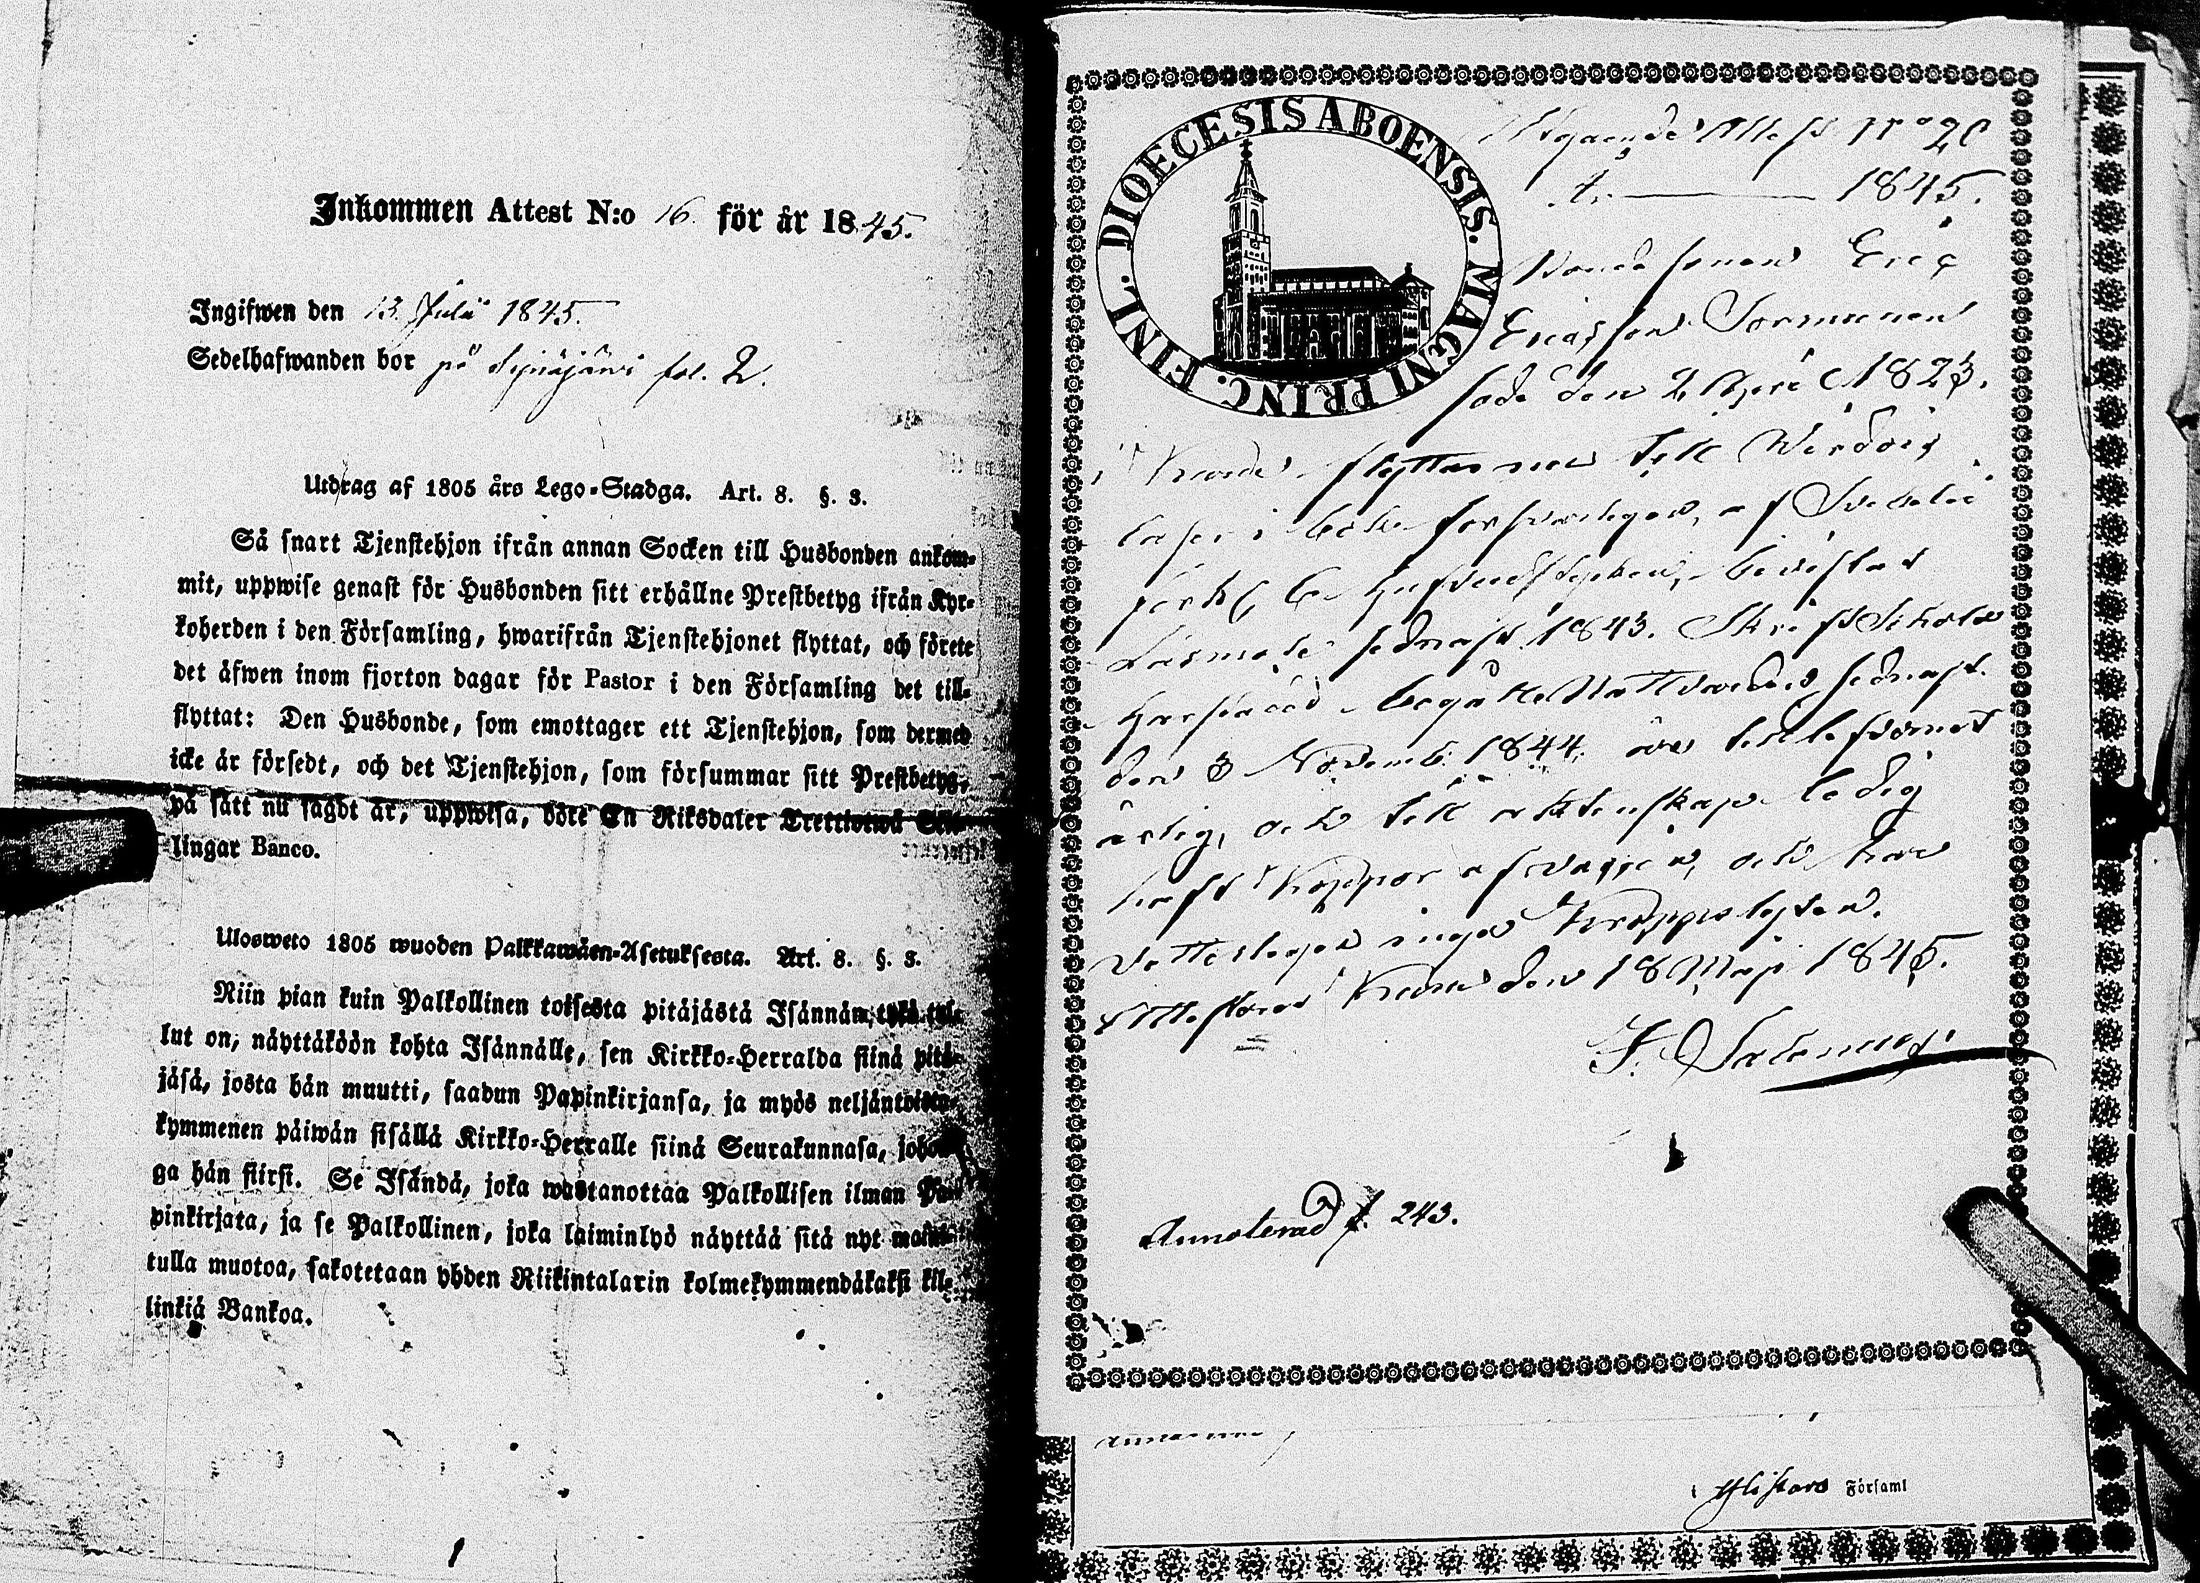 Inkommen Attest N:o 16. för år 1845.
Ingifwen den 13. Julii 1845.
Sedelhafwanden bor på fol. 2.
Utdrag af 1805 års Lego-Stadga. Art. 8. §. 3.
Så snart Tjenstehjon ifrån annan Socken till Husbonden ankom-
mit, uppwise genast för Husbonden sitt erhållne Prestbetyg ifrån Kyr-
koherden i den Församling, hwarifrån Tjenstehjonet flyttat, och förete
det äfwen inom fjorton dagar för Pastor i den Församling det till-
flyttat: Den Husbonde, som emottager ett Tjenstehjon, som dermed
icke är försedt, och det Tjenstehjon, som försummar sitt Prestbetyg,
på sätt nu sagdt är, uppwisa, böte En Riksdaler Trettiotwå Skil-
lingar Banco.
Ulosweto 1805 wuoden Palkkawäen-Asetuksesta. Art. 8. §. 3.
Niin pian kuin Palkollinen toisesta pitäjästä Isännän tykö tul-
lut on, näyttäköön kohta Isännälle, sen Kirkko-Herralda siinä pitä-
jäsä, josta hän muutti, saadun Papinkirjansa, ja myös neljäntoista-
kymmenen päiwän sisällä Kirkko-Herralle siinä Seurakunnasa, johon-
ga hän siirsi. Se Isändä, joka wastanottaa Palkollisen ilman Pa-
pinkirjata, ja se Palkollinen, joka laiminlyö näyttää sitä nyt mainit-
tulla muotoa, sakotetaan yhden Riikintalarin kolmekymmendäkaksi kil-
linkiä Bankoa.
FINL. DIOECESIS ABOENSIS. MAGNI PRINC.
Utgående Attest N:o 20
År 1845.
Bondesonen Eric
Ericsson Sormunen
född den 2 April 1823.
flyttar nu till Wirdois
läser i bok försvarligen, af Svebelii
förkl. be Hufvudstycken, bevistat
Läsmöte sednast 1843. Skriftskola
begått Nattvarden sednast
den 3 Novemb. 1844, är till lefvernet
ärlig, och till äktenskap ledig
haft Koppor af vaccin, och har
inga Kroppslyten.
Attesterar den 18 Maji 1845.
Annoterad f. 243.
i Församl